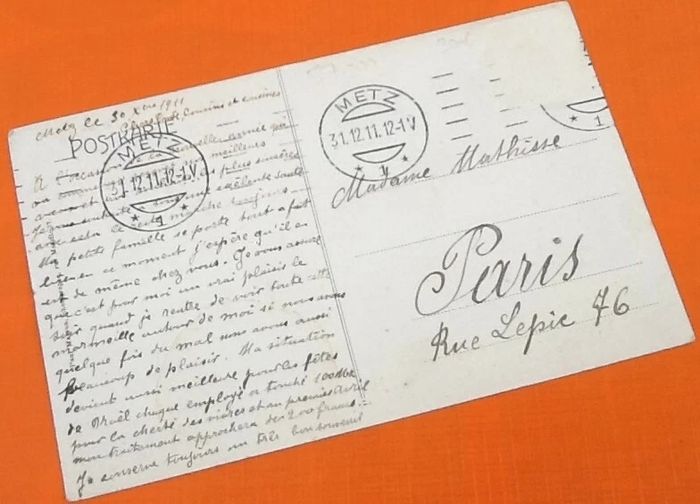 Metz le 30 Xbre 1911
Cousins et cousines
POSTKARTE
METZ
31.12.11.12-1V
1
A l'occasion de la nouvelle année qui
meilleurs
plus sincères
une exélente santé
toujours
Ma petite famille se porte tout a fait
bien en ce moment j'espère qu'il en
est de même chez vous. Je vous assure
que c'est pour moi un vrai plaisir le
soir quand je rentre de voir toute cette
marmaille autour de moi si nous avons
quelque fois du mal nous avons aussi
beaucoup de plaisir. Ma situation
devient aussi meilleure pour les fêtes
de Noël chaque employé a touché 100 Mk
pour la cherté des vivres et au premier Avril
mon traitement approchera des 200 francs.
Je conserve toujours un très bon souvenir
METZ
31.12.11.12-1V
1
Madame Mathisse
Paris
Rue Lepic 76